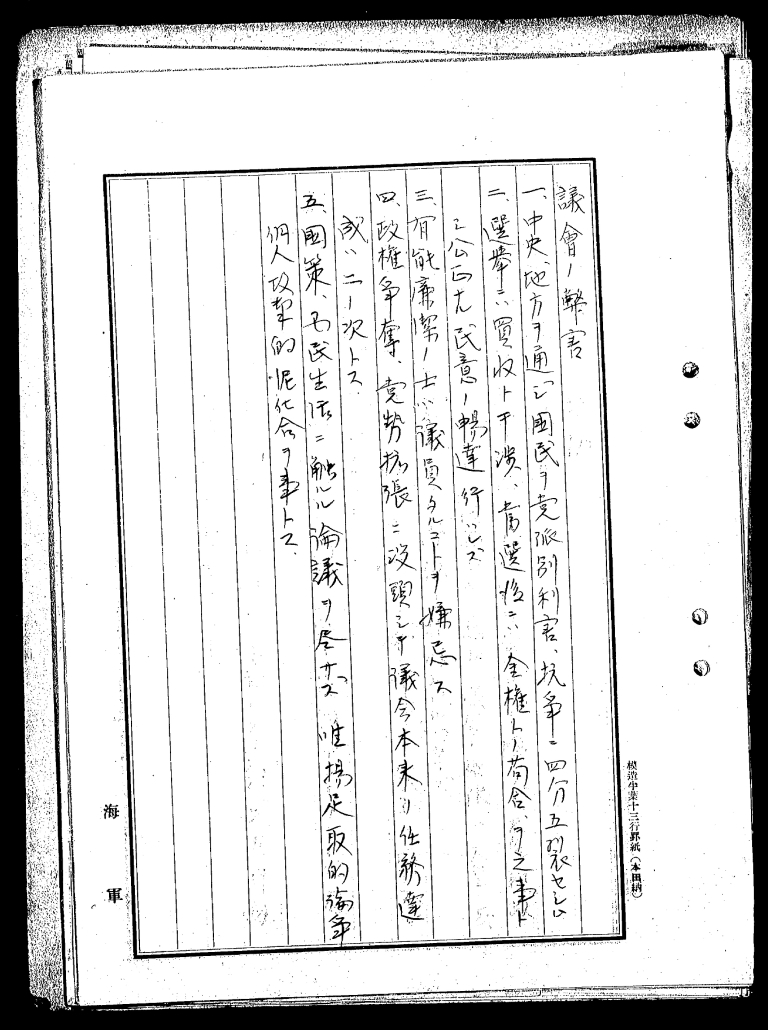 議會ノ弊害
一、中央、地方ヲ通シ國民ヲ党派別利害、抗争ニ四分五裂セシム
二、選挙ニハ買收ト干渉、當選後ニハ金権トノ苟合、ヲ之事ト
シ公正ナ民意ノ暢達行ハレズ
三、有能廉潔ノ士ハ議員タルコトヲ嫌忌ス
四、政権争奪、党勢拡張ニ没頭シテ議会本来ノ任務達
成ハ二ノ次トス
五、國策、国民生活ニ触ルル論議ヲ尽サズ 唯揚足取的論争
個人攻撃的泥仕合ヲ事トス、
模造半葉十三行罫紙(本田納)
海軍